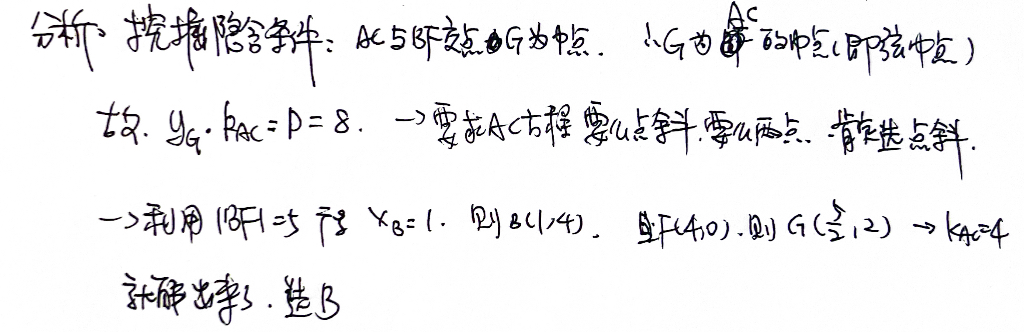 分析。挖掘隐含条件：AC与BF交点G为中点. ∴G为AC的中点(即弦中点)
故. y_G·k_AC=P=8. →要求AC方程 要么点斜.要么两点. 肯定选点斜.
→利用|BF|=5 得 x_B=1. 则B(1,4). 且F(4,0).则G(5/2,2) → k_AC=4
就解出来了.选B